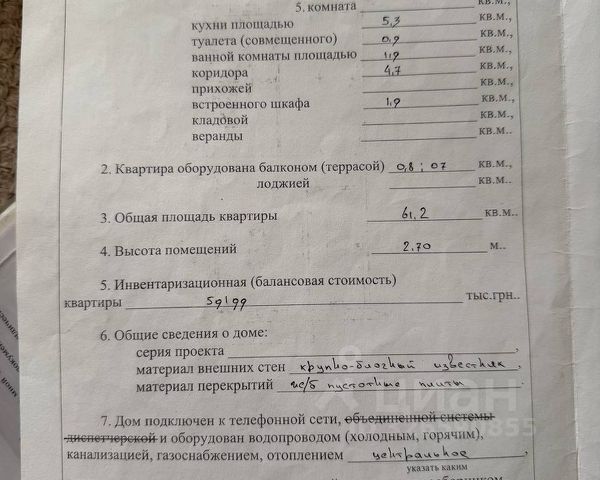 5. комната кв.м.,
кухни площадью 5,3 кв.м.,
туалета (совмещенного) 0,9 кв.м.,
ванной комнаты площадью 1,9 кв.м.,
коридора 4,7 кв.м.,
прихожей кв.м.,
встроенного шкафа 1,9 кв.м.,
кладовой кв.м.,
веранды кв.м..
2. Квартира оборудована балконом (террасой) 0,8; 07 кв.м.,
лоджией кв.м..
3. Общая площадь квартиры 61,2 кв.м..
4. Высота помещений 2.70 м..
5. Инвентаризационная (балансовая стоимость)
квартиры 59199 тыс.грн..
6. Общие сведения о доме:
серия проекта ,
материал внешних стен крупно-блочный известняк,
материал перекрытий ж/б пустотные плиты
7. Дом подключен к телефонной сети, объединенной системы
диспетчерской и оборудован водопроводом (холодным, горячим),
канализацией, газоснабжением, отоплением центральное
указать каким
циан
855